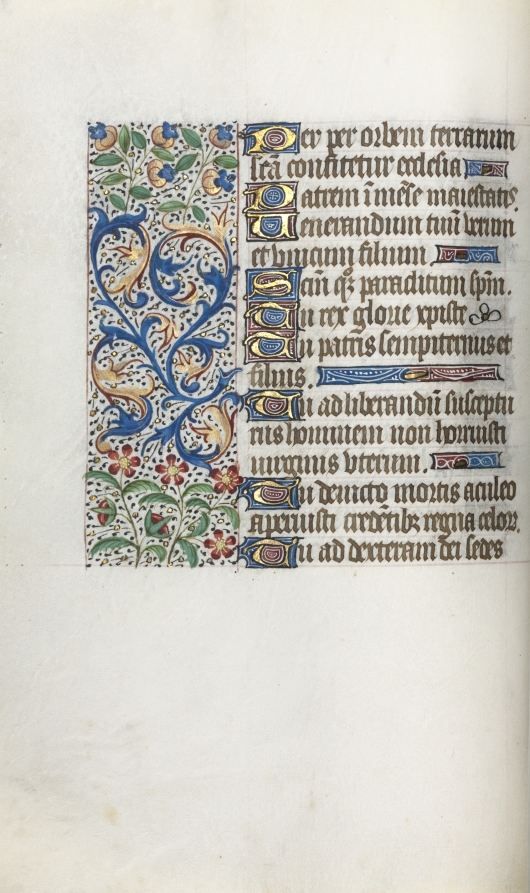 Per per orbem terrarum
sc̄ā confitetur ecclesia
Patrem īmēse maiestatis.
Venerandum tuū verum
et vnicum filium
Sc̄m qz̄ paraclitum sp̄m.
Tu rex glorie xpiste
Tu patris sempiternus et
filius.
Tu ad liberandū susceptu
rus hominem non horruisti
virginis vterum.
Tu deuicto mortis aculeo
aperuisti credētibꝫ regna celoꝝ.
Tu ad dexteram dei sedes